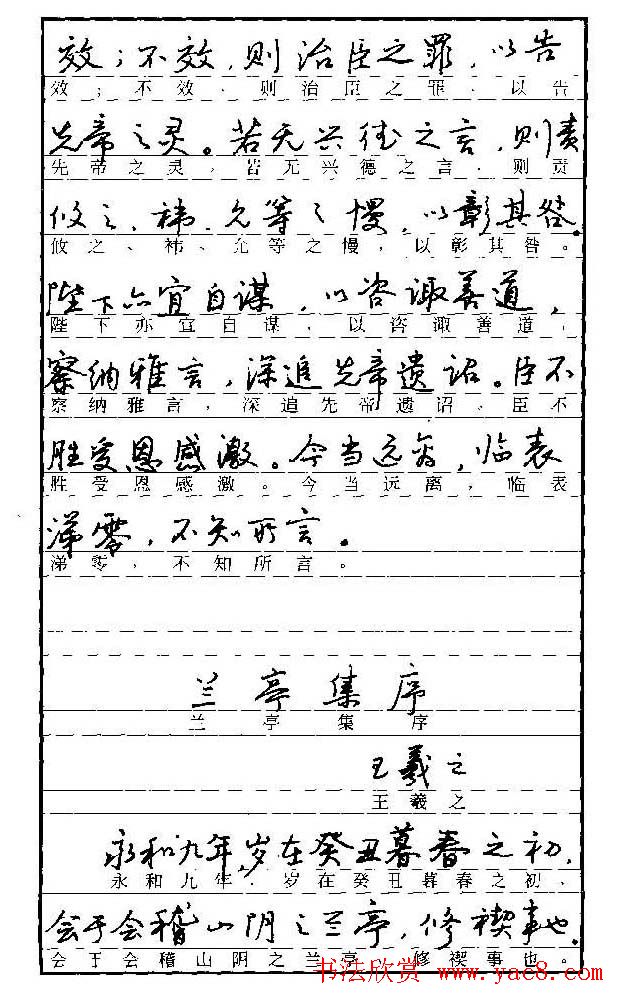 效；不效，则治臣之罪，以告
效；不效，则治臣之罪，以告
先帝之灵。若无兴德之言，则责
先帝之灵，若无兴德之言，则责
攸之、祎、允等之慢，以彰其咎。
攸之、祎、允等之慢，以彰其咎。
陛下亦宜自谋，以咨诹善道，
陛下亦宜自谋，以咨诹善道，
察纳雅言，深追先帝遗诏。臣不
察纳雅言，深追先帝遗诏。臣不
胜受恩感激。今当远离，临表
胜受恩感激。今当远离，临表
涕零，不知所言。
涕零，不知所言。
兰亭集序
兰亭集序
王羲之
王羲之
永和九年，岁在癸丑暮春之初，
永和九年，岁在癸丑暮春之初，
会于会稽山阴之兰亭，修禊事也。
会于会稽山阴之兰亭，修禊事也。
书法欣赏 www.yac8.com